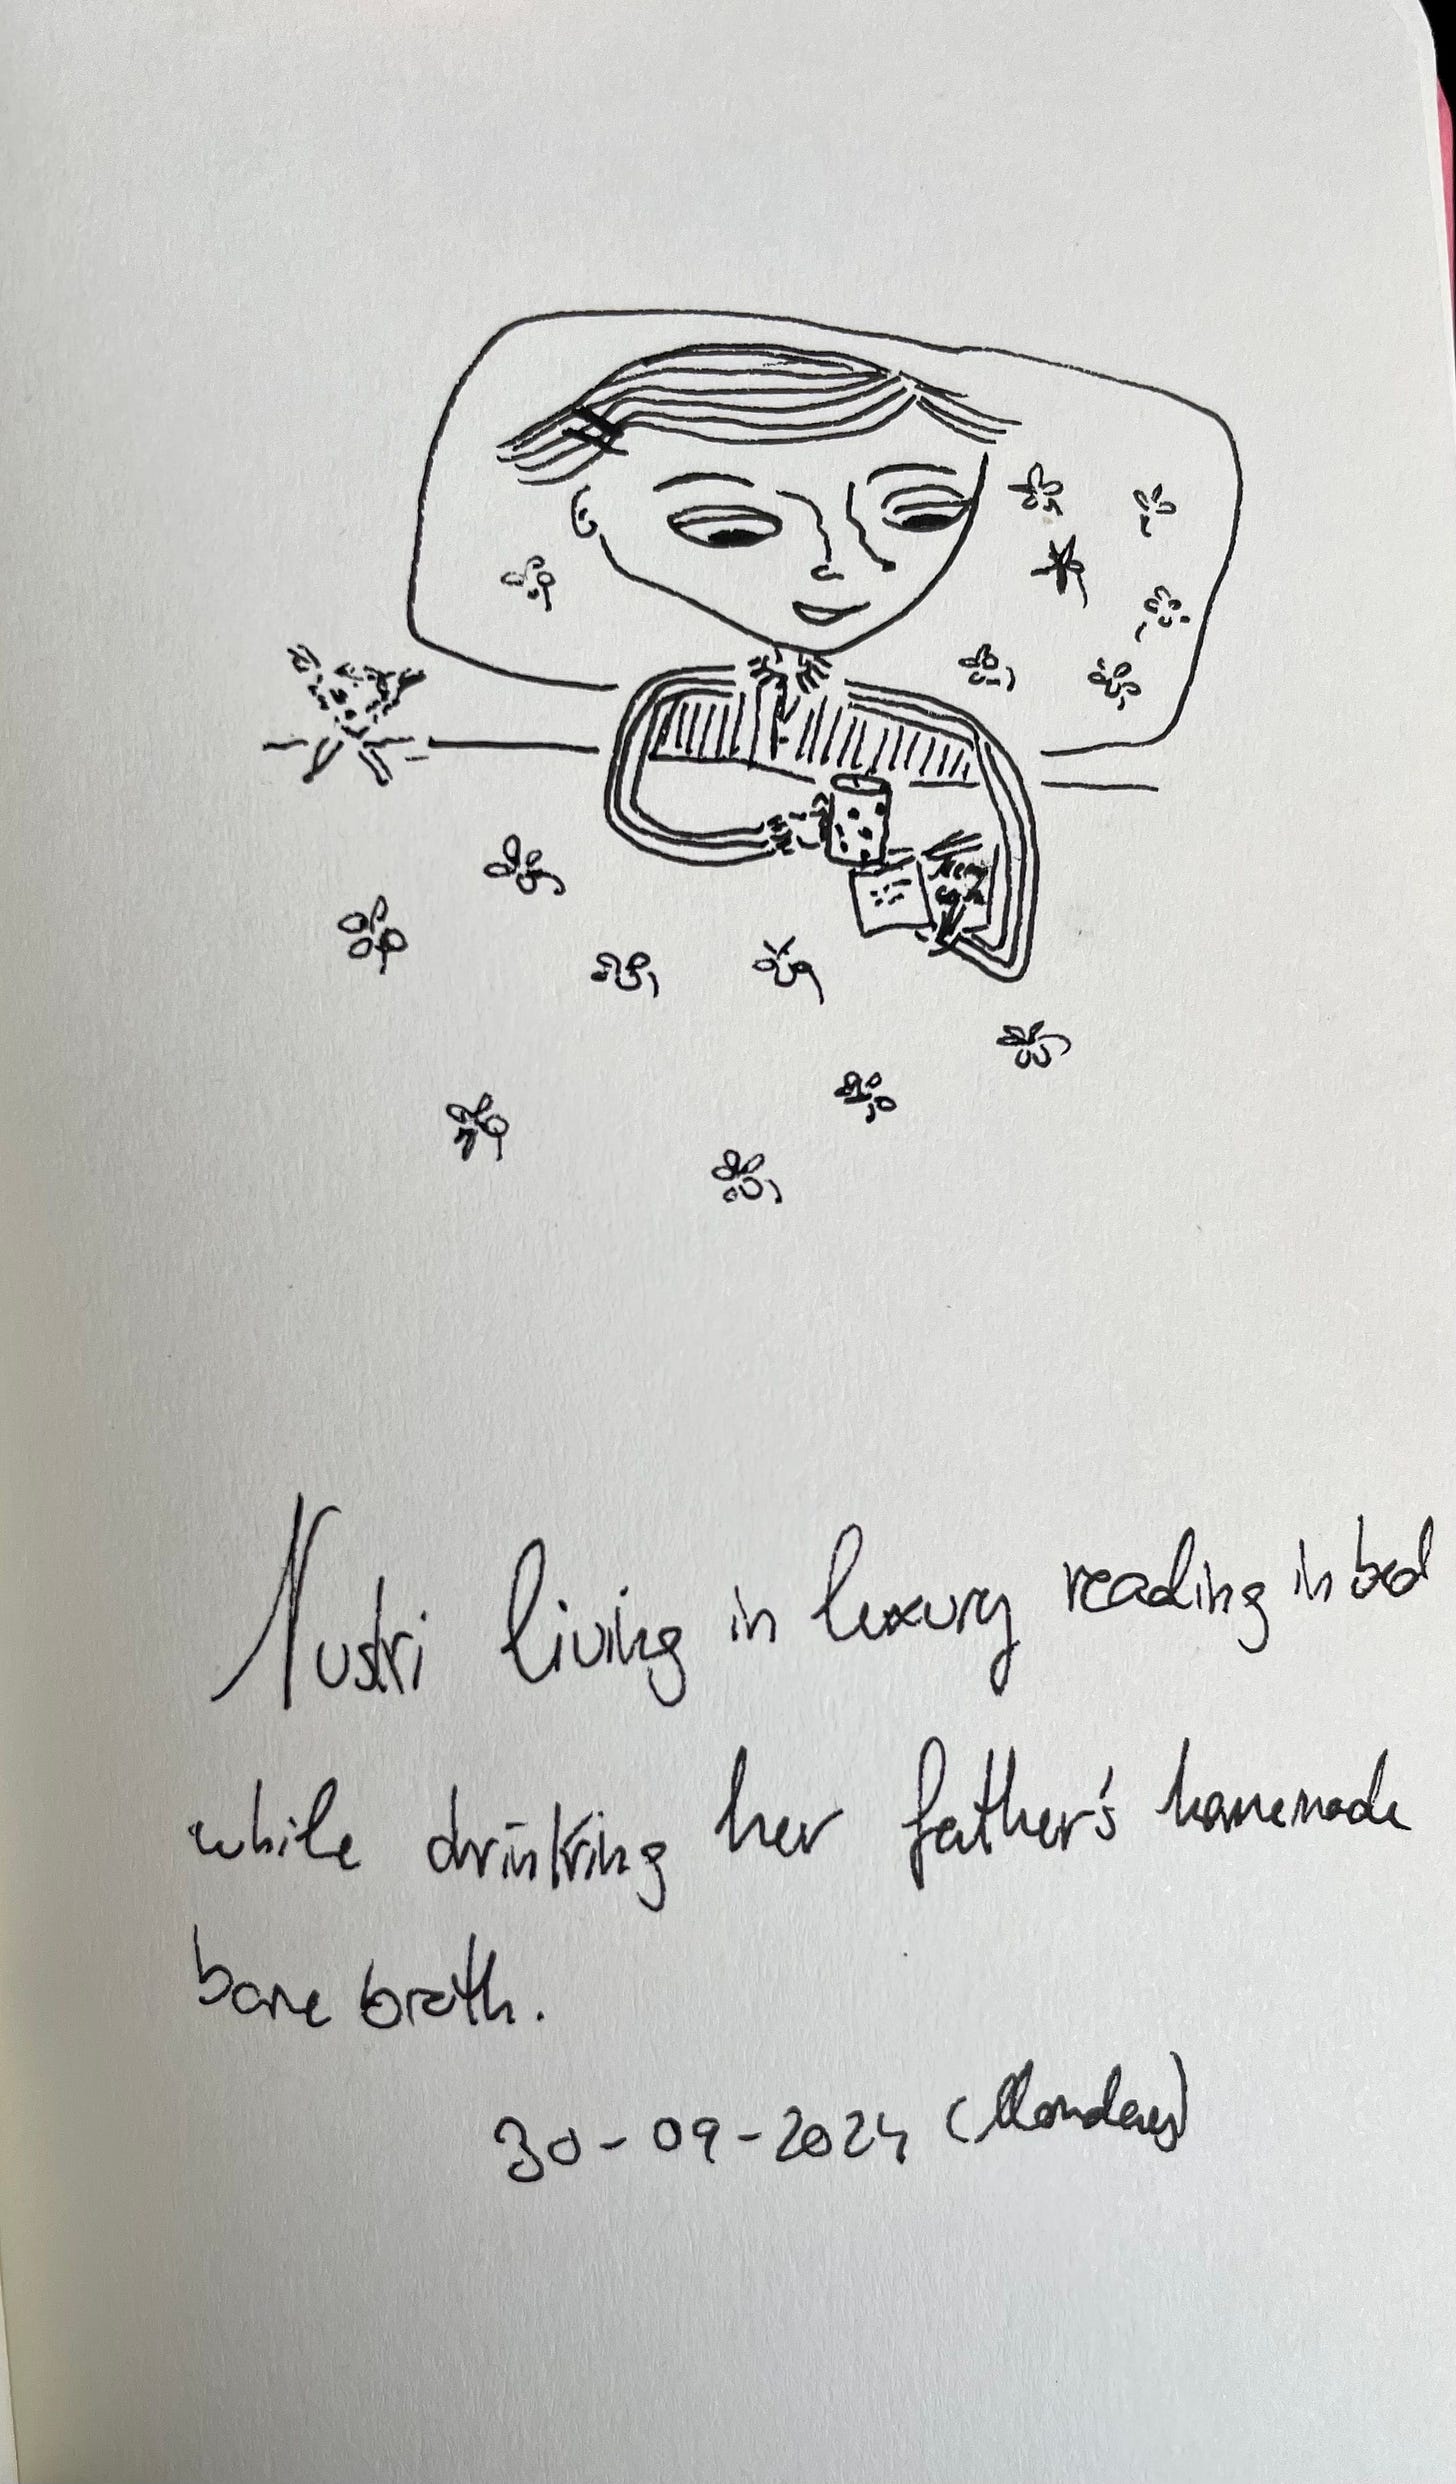 Nustri living in luxury reading in bed
while drinking her father's homemade
bone broth.
30-09-2024 (Monday)